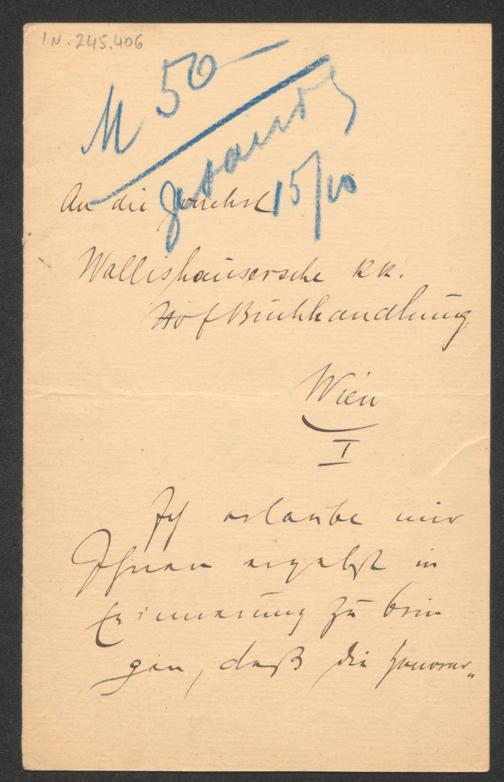 I.N. 245.406
M 50
gesandt
15/10
An die
Wallishaussersche kk.
HofBuchhandlung
Wien
I
Ich erlaube mir
Ihnen ergebst in
Erinnerung zu brin
gen, daß die Honorar„